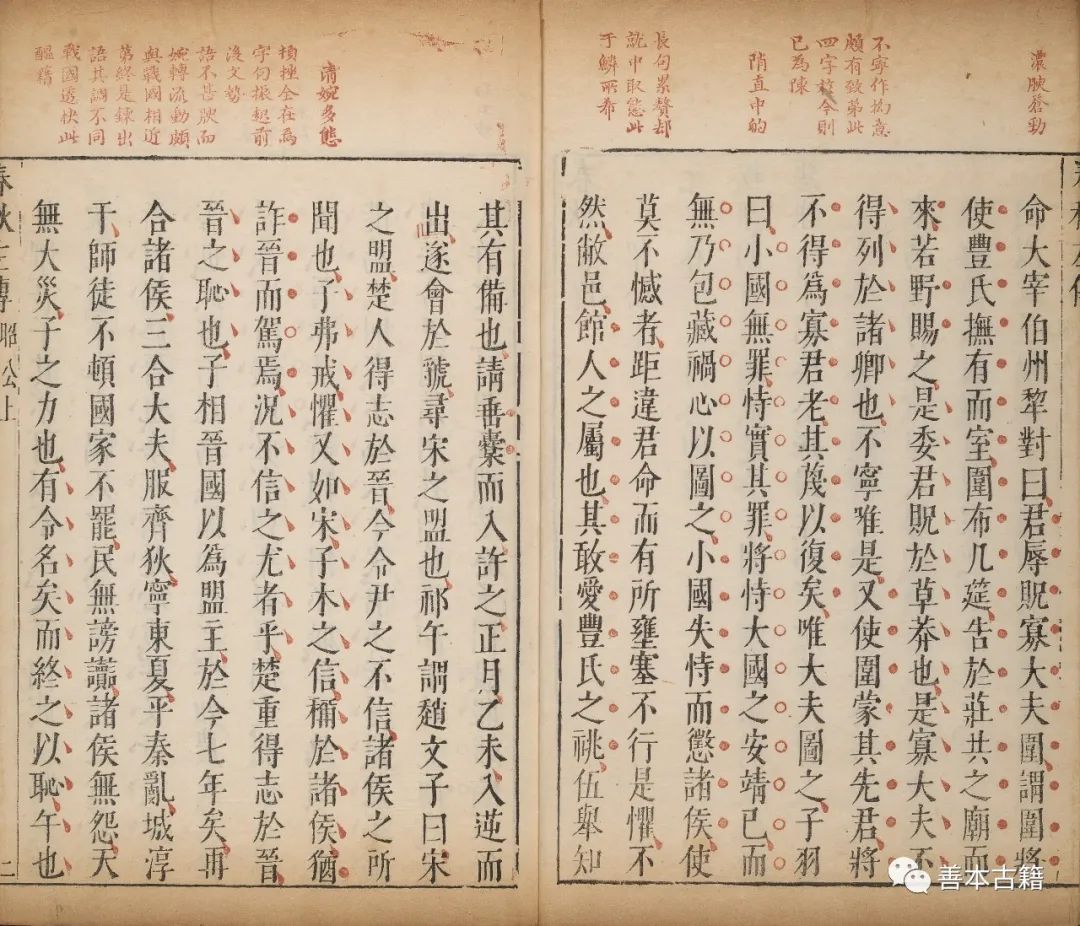 濃腴蒼勁
不寧作拘意
頗有致第此
四字於今則
已為陳
陗直中的
長句累贅却
就中取態此
于鱗所希
命大宰伯州犂對曰君辱貺寡大夫圍謂圍將
使豐氏撫有而室圍布几筵告於莊共之廟而
來若野賜之是委君貺於草莽也是寡大夫不
得列於諸卿也不寧唯是又使圍蒙其先君將
不得爲寡君老其蔑以復矣唯大夫圖之子羽
曰小國無罪恃實其罪將恃大國之安靖己而
無乃包藏禍心以圖之小國失恃而懲諸侯使
莫不憾者距違君命而有所壅塞不行是懼不
然敝邑館人之屬也其敢愛豐氏之祧伍舉知
清婉多態
頓挫全在為
字句振起前
後文勢
語不甚腴而
婉轉流動頗
與戰國相近
第終是鍊出
語其調不同
戰國透快此
醞藉
其有備也請垂櫜而入許之正月乙未入逆而
出遂會於虢尋宋之盟也祁午謂趙文子曰宋
之盟楚人得志於晉今令尹之不信諸侯之所
聞也子弗戒懼又如宋子木之信稱於諸侯猶
詐晉而駕焉況不信之尤者乎楚重得志於晉
晉之恥也子相晉國以爲盟主於今七年矣再
合諸侯三合大夫服齊狄寧東夏平秦亂城淳
于師徒不頓國家不罷民無謗讟諸侯無怨天
無大災子之力也有令名矣而終之以恥午也
春秋左傳 昭公上 二
善本古籍